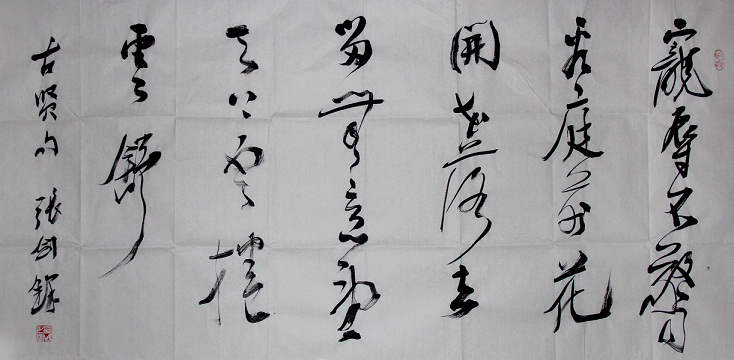 寵辱不驚
看庭前花
開花落去
留無意望
天上雲捲
雲舒
古贤句 張劍